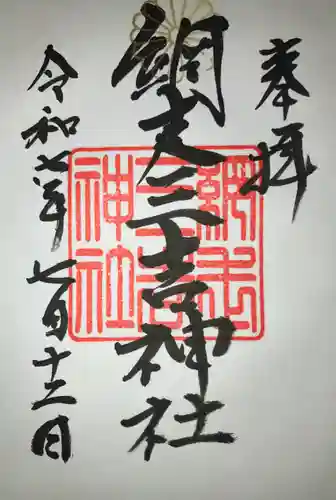 奉拝
網走三吉神社
令和七年 七月十三日
網走
三吉
神社